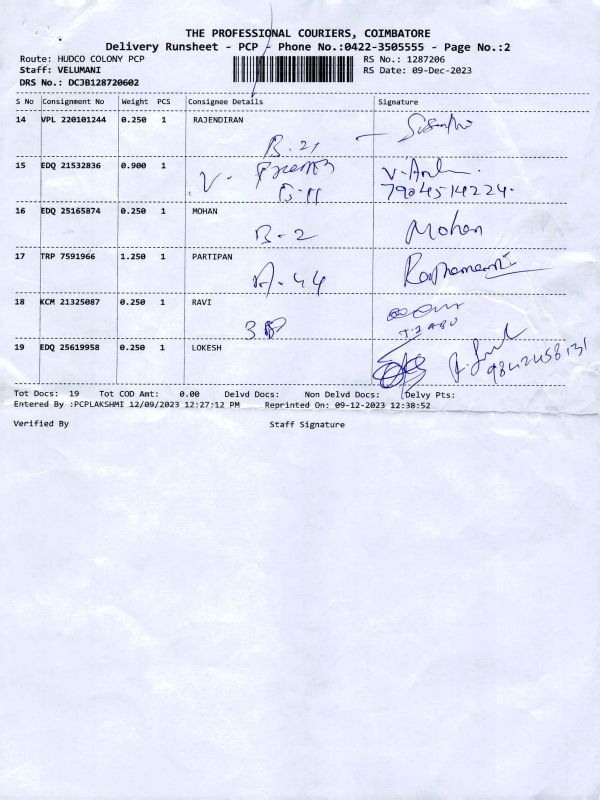 THE PROFESSIONAL COURIERS, COIMBATORE
Delivery Runsheet - PCP - Phone No.:0422-3505555 - Page No.:2
Route: HUDCO COLONY PCP RS No.: 1287206
Staff: VELUMANI RS Date: 09-Dec-2023
DRS No.: DCJB128720602
S No Consignment No Weight PCS Consignee Details Signature
14 VPL 220101244 0.250 1 RAJENDIRAN
B-21
15 EDQ 21532836 0.900 1
V. B-11 7904514224.
16 EDQ 25165874 0.250 1 MOHAN
B-2 Mohan
17 TRP 7591966 1.250 1 PARTIPAN
A-44
18 KCM 21325087 0.250 1 RAVI
38
19 EDQ 25619958 0.250 1 LOKESH
9842458131
Tot Docs: 19 Tot COD Amt: 0.00 Delvd Docs: Non Delvd Docs: Delvy Pts:
Entered By :PCPLAKSHMI 12/09/2023 12:27:12 PM Reprinted On: 09-12-2023 12:38:52
Verified By Staff Signature